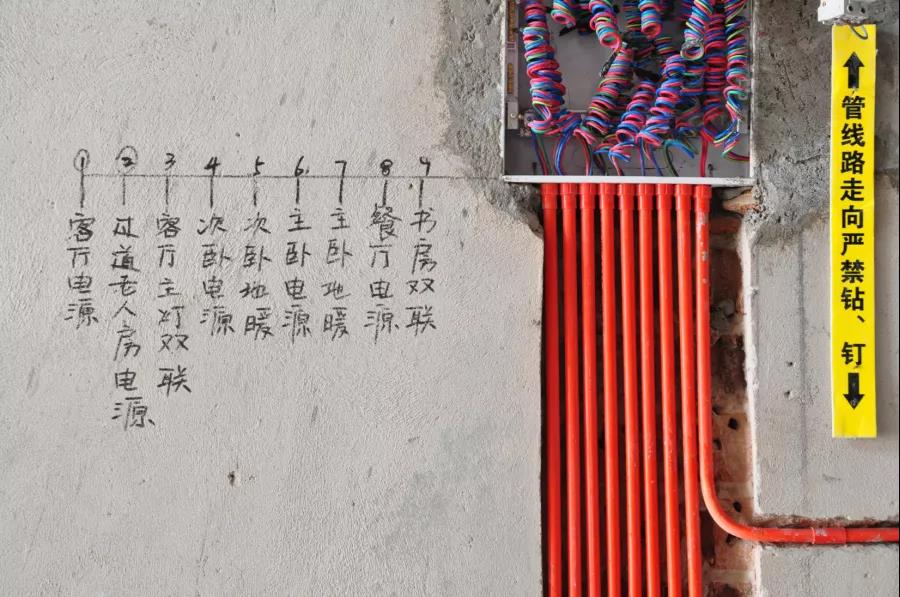 ① 客厅电源
② 过道老人房电源
3 客厅主灯双联
4 次卧电源
5 次卧地暖
6 主卧电源
7 主卧地暖
8 餐厅电源
9 书房双联
↑管线路走向严禁钻、钉↓